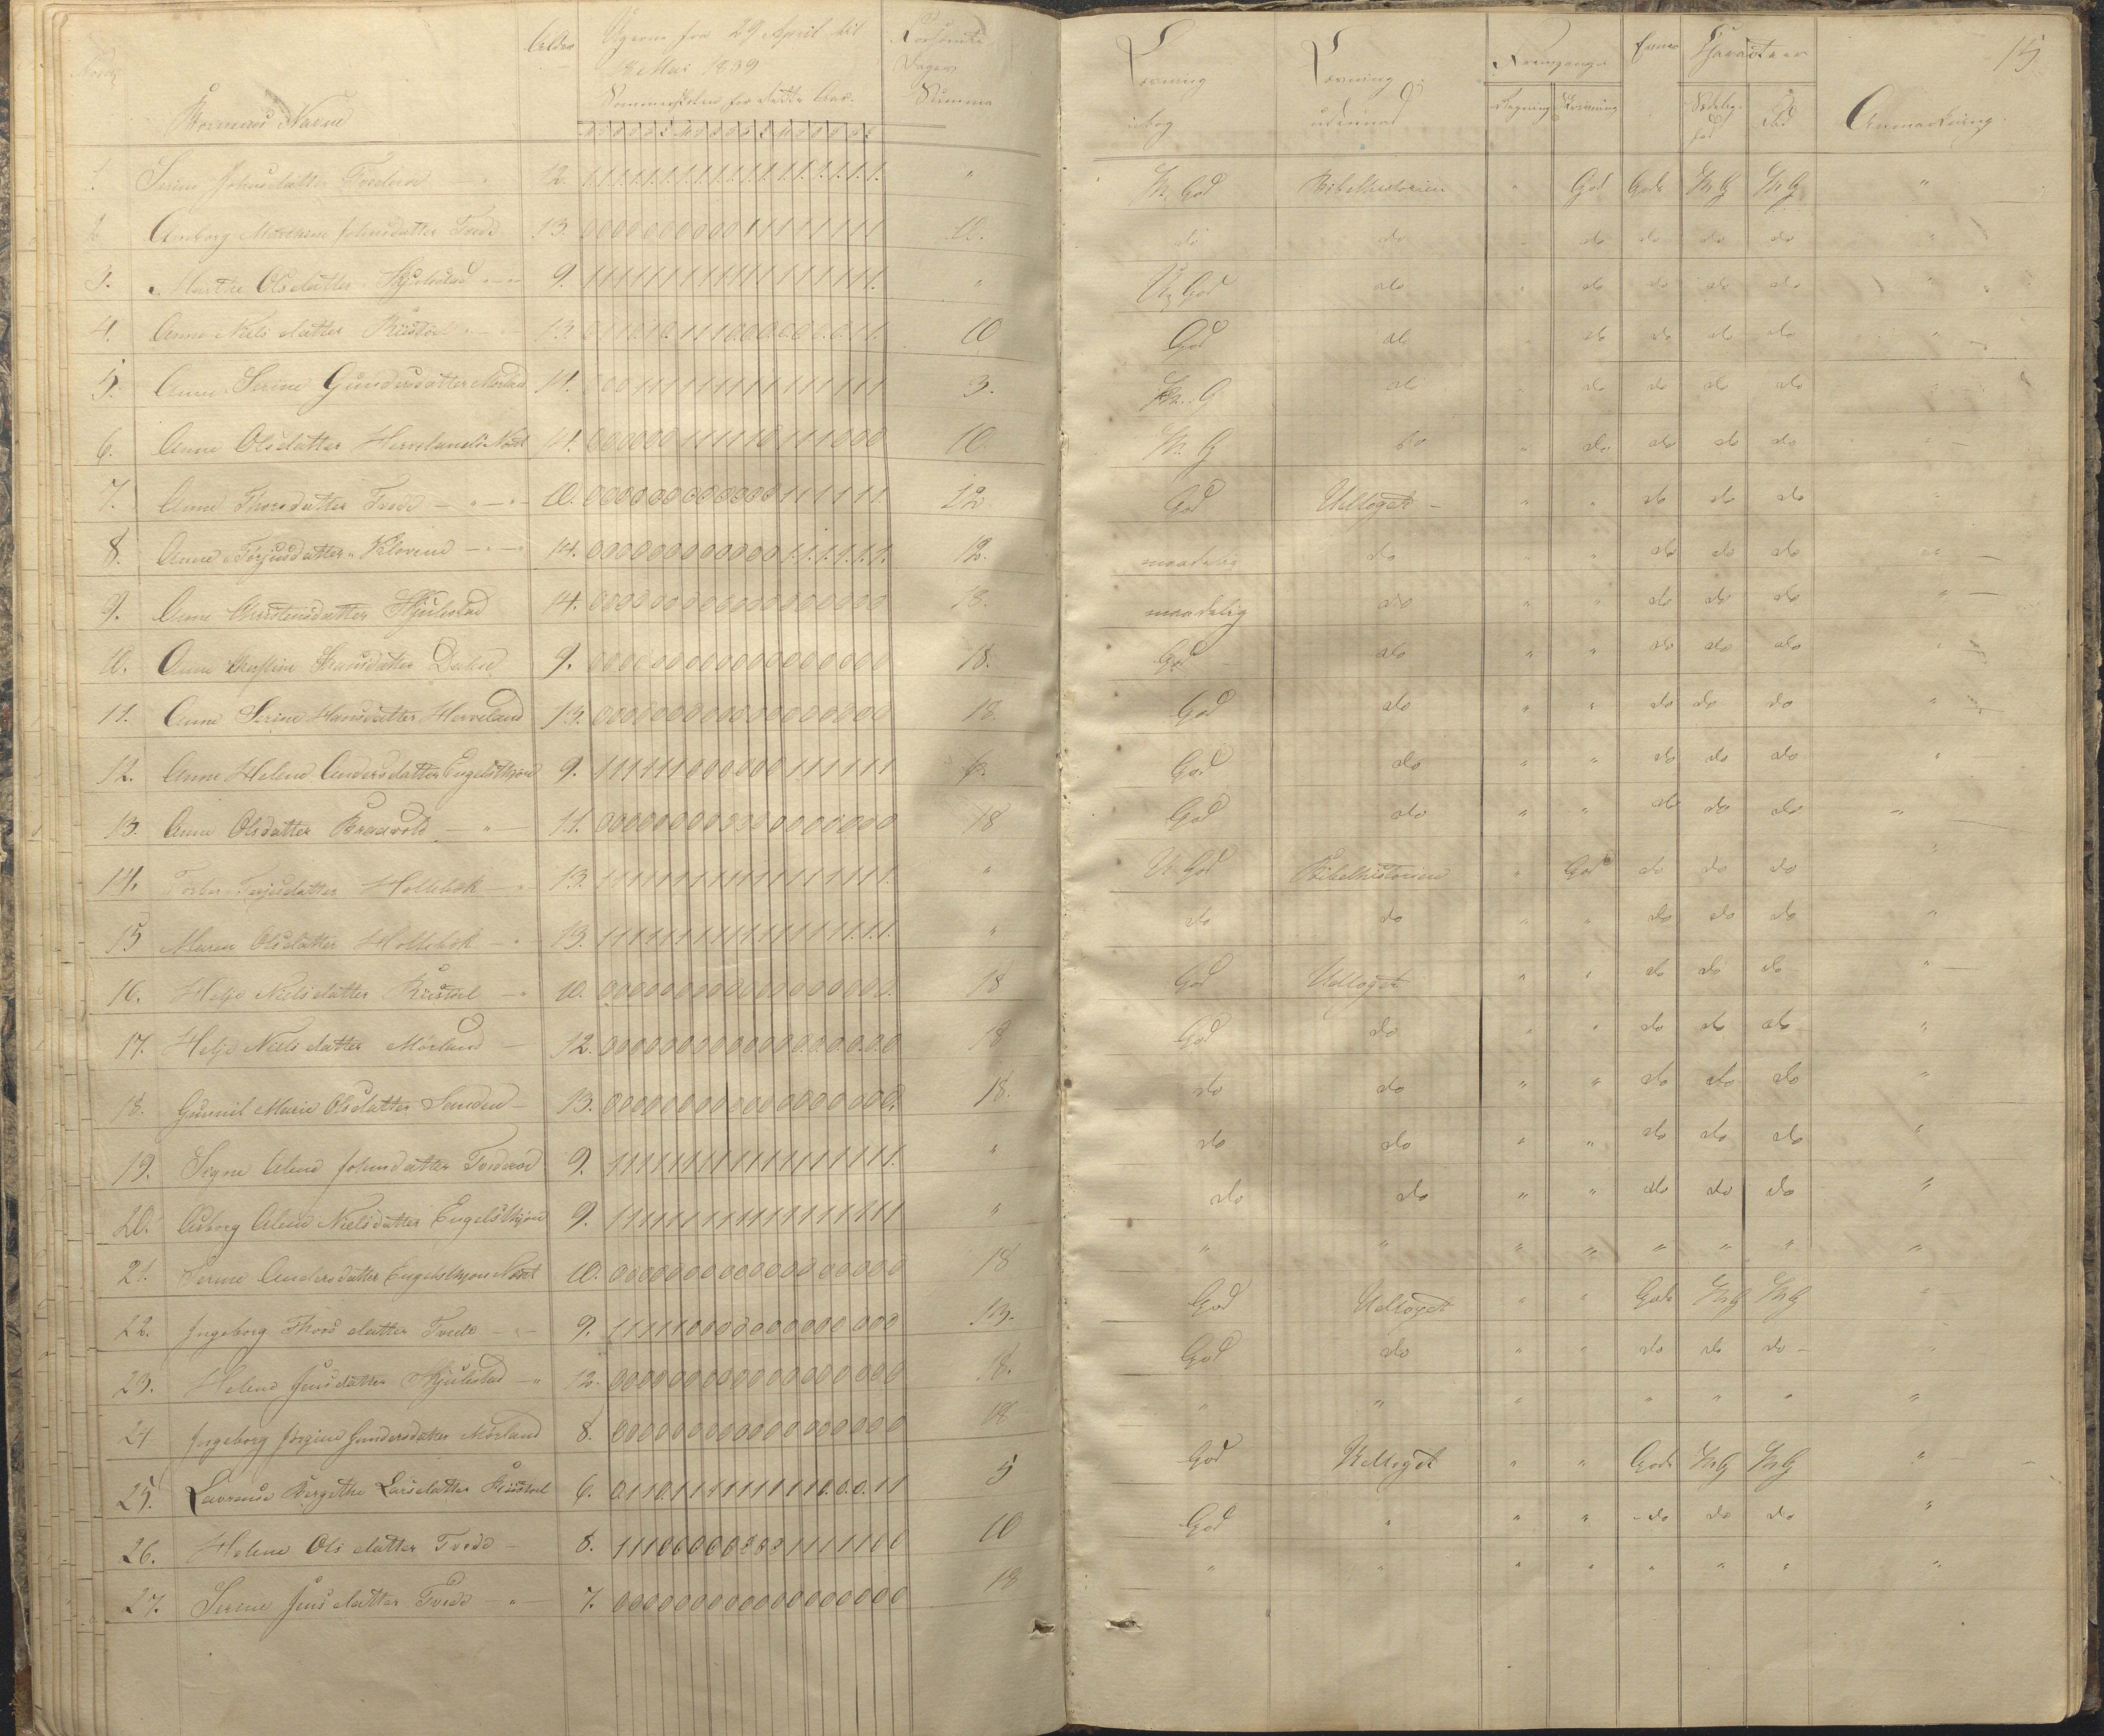 Børnenes Navne
Alder
Ugerne fra 29 April til
18 Mai 1839
Sommerskolen for dette Aar
Forsømte
Dager
Summa
Læsning
i bog
Læsning
udenad
Fremgang i
Regning
Skrivning
Evner
Charakteer
Sædelighed
Flid
Anmærkning
15
1. Serine Johnsdatter 12. 1 1 1 1 1 1 1 1 1 1 1 1 1 1 1 1 1 1 " M. God Bibelhistorien " God Gode M G M G "
2 Johnsdatter Tvede 13. 0 0 0 0 0 0 0 0 0 0 1 1 1 1 1 1 1 1 10. do do " do do do do "
3. Marthe Olsdatter Skjulestad 9. 1 1 1 1 1 1 1 1 1 1 1 1 1 1 1 1 1 1 " God do " do do do do "
4. Anne Nielsdatter Riistøl 13. 10 God do do do do do "
5. Anne Serine Gundersdatter Mørland 11. 0 0 0 1 1 1 1 1 1 1 1 1 1 1 1 1 1 1 3. M. G do " do do do do "
6. Anne Olsdatter Hervelands Næst 11. 10 M. G do " do do do do
7. Anne Thorsdatter Tvede 10. 0 0 0 0 0 0 0 0 0 0 0 0 1 1 1 1 1 1 12 God Udtoget " " do do do "
8. Anne Torjusdatter 14. 0 0 0 0 0 0 0 0 0 0 0 0 1 1 1 1 1 1 12. maadelig do " " do do do "
9. Anne Christensdatter Skjulestad 14. 0 0 0 0 0 0 0 0 0 0 0 0 0 0 0 0 0 0 18. maadelig do " " do do do "
10. Anne Hansdatter Dalen 9. 0 0 0 0 0 0 0 0 0 0 0 0 0 0 0 0 0 0 18. God do " " do do do "
11. Anne Serine Hansdatter Herveland 13. 0 0 0 0 0 0 0 0 0 0 0 0 0 0 0 0 0 0 18. God do " " do do do "
12. Anne Helene Andersdatter Engelsthjøn 9. 1 1 1 1 1 1 0 0 0 0 0 0 1 1 1 1 1 1 6. God do " " do do do "
13. Anne Olsdatter Braavold 11. 0 0 0 0 0 0 0 0 0 0 0 0 0 0 0 0 0 0 18 God do " " do do do "
14. Terjesdatter Holtebek 13. 1 1 1 1 1 1 1 1 1 1 1 1 1 1 1 1 1 1 " God Bibelhistorien " God do do do "
15 Maren Olsdatter Holtebek 13. 1 1 1 1 1 1 1 1 1 1 1 1 1 1 1 1 1 1 " do do " " do do do "
16. Helje Nielsdatter Riistøl 10. 0 0 0 0 0 0 0 0 0 0 0 0 0 0 0 0 0 0 18 God Udtoget " " do do do "
17. Helje Nielsdatter Mørland 12. 0 0 0 0 0 0 0 0 0 0 0 0 0 0 0 0 0 0 18 God do " " do do do "
18. Gunnil Marie Olsdatter Sanden 13. 0 0 0 0 0 0 0 0 0 0 0 0 0 0 0 0 0 0 18. do do " " do do do "
19. Signe Alene Johnsdatter 9. 1 1 1 1 1 1 1 1 1 1 1 1 1 1 1 1 1 1 " do do " " do do do "
20. Asborg Alene Nielsdatter Engelsthjøn 9. 1 1 1 1 1 1 1 1 1 1 1 1 1 1 1 1 1 1 " do do " " do do do "
21. Serine Andersdatter Engelsthjøn Næst 10. 0 0 0 0 0 0 0 0 0 0 0 0 0 0 0 0 0 0 18 " " " " " " " "
22. Ingeborg Thorsdatter Tvede 9. 1 1 1 1 1 0 0 0 0 0 0 0 0 0 0 0 0 0 13. God Udtoget " " Gode M G M G "
23. Helene Jensdatter Skjulestad 12. 0 0 0 0 0 0 0 0 0 0 0 0 0 0 0 0 0 0 18. God do " " do do do "
24 Ingeborg Jørgine Gundersdatter Mørland 8. 0 0 0 0 0 0 0 0 0 0 0 0 0 0 0 0 0 0 18 " " " " " " "
25. Lavrense Bergithe Larsdatter Riistøl 6. 0 1 1 0 1 1 1 1 1 1 1 1 1 0 0 0 1 1 5 God Udtoget " " Gode M G M G "
26. Helene Olsdatter Tvede 8. 10 God " " " do do do "
27. Serine Jensdatter Tvede 7. 0 0 0 0 0 0 0 0 0 0 0 0 0 0 0 0 0 0 18 " " " " " " " "